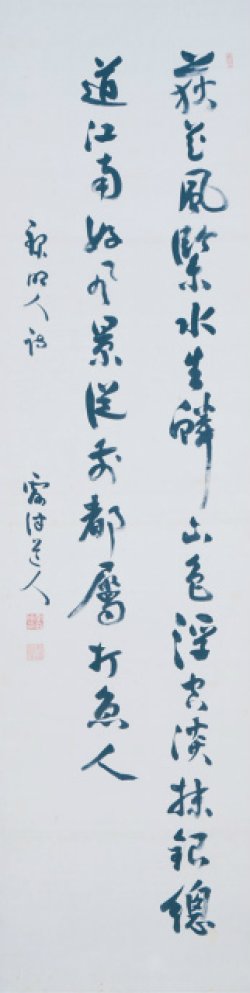 荻花風緊水生鱗山色浮空淡抹銀總
道江南好風景從前都屬打魚人
録明人詩 道人